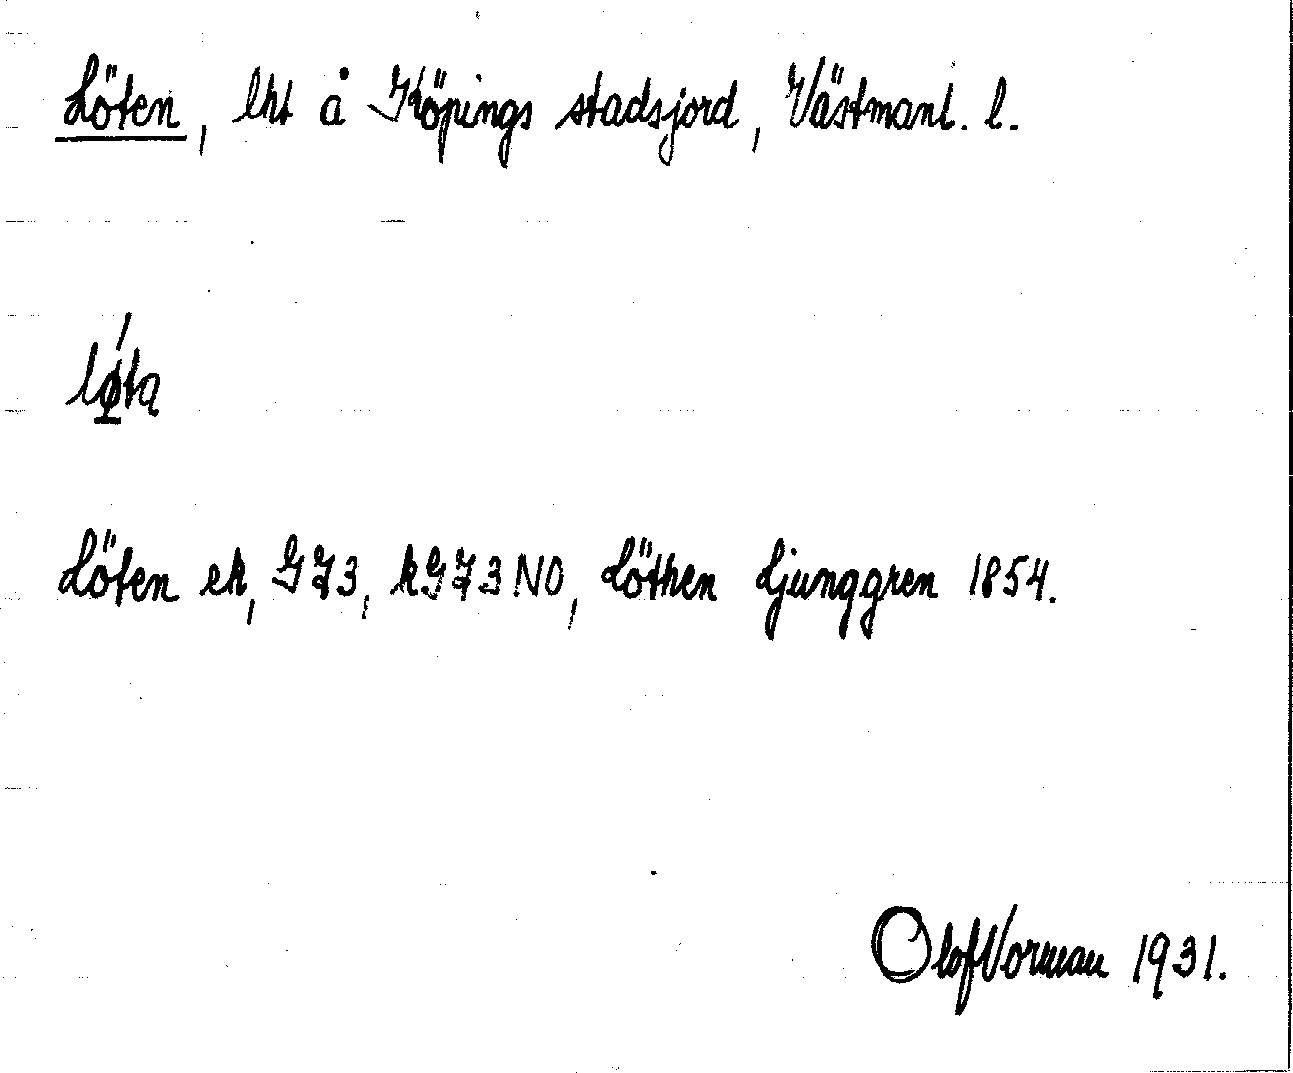 Löten, lht å Köpings stadsjord, Västmanl. l.
lǿ̱ta
Löten ek, GJ3, kGJ3NO, Löthen Ljunggren 1854.
Olof Vorman 1931.